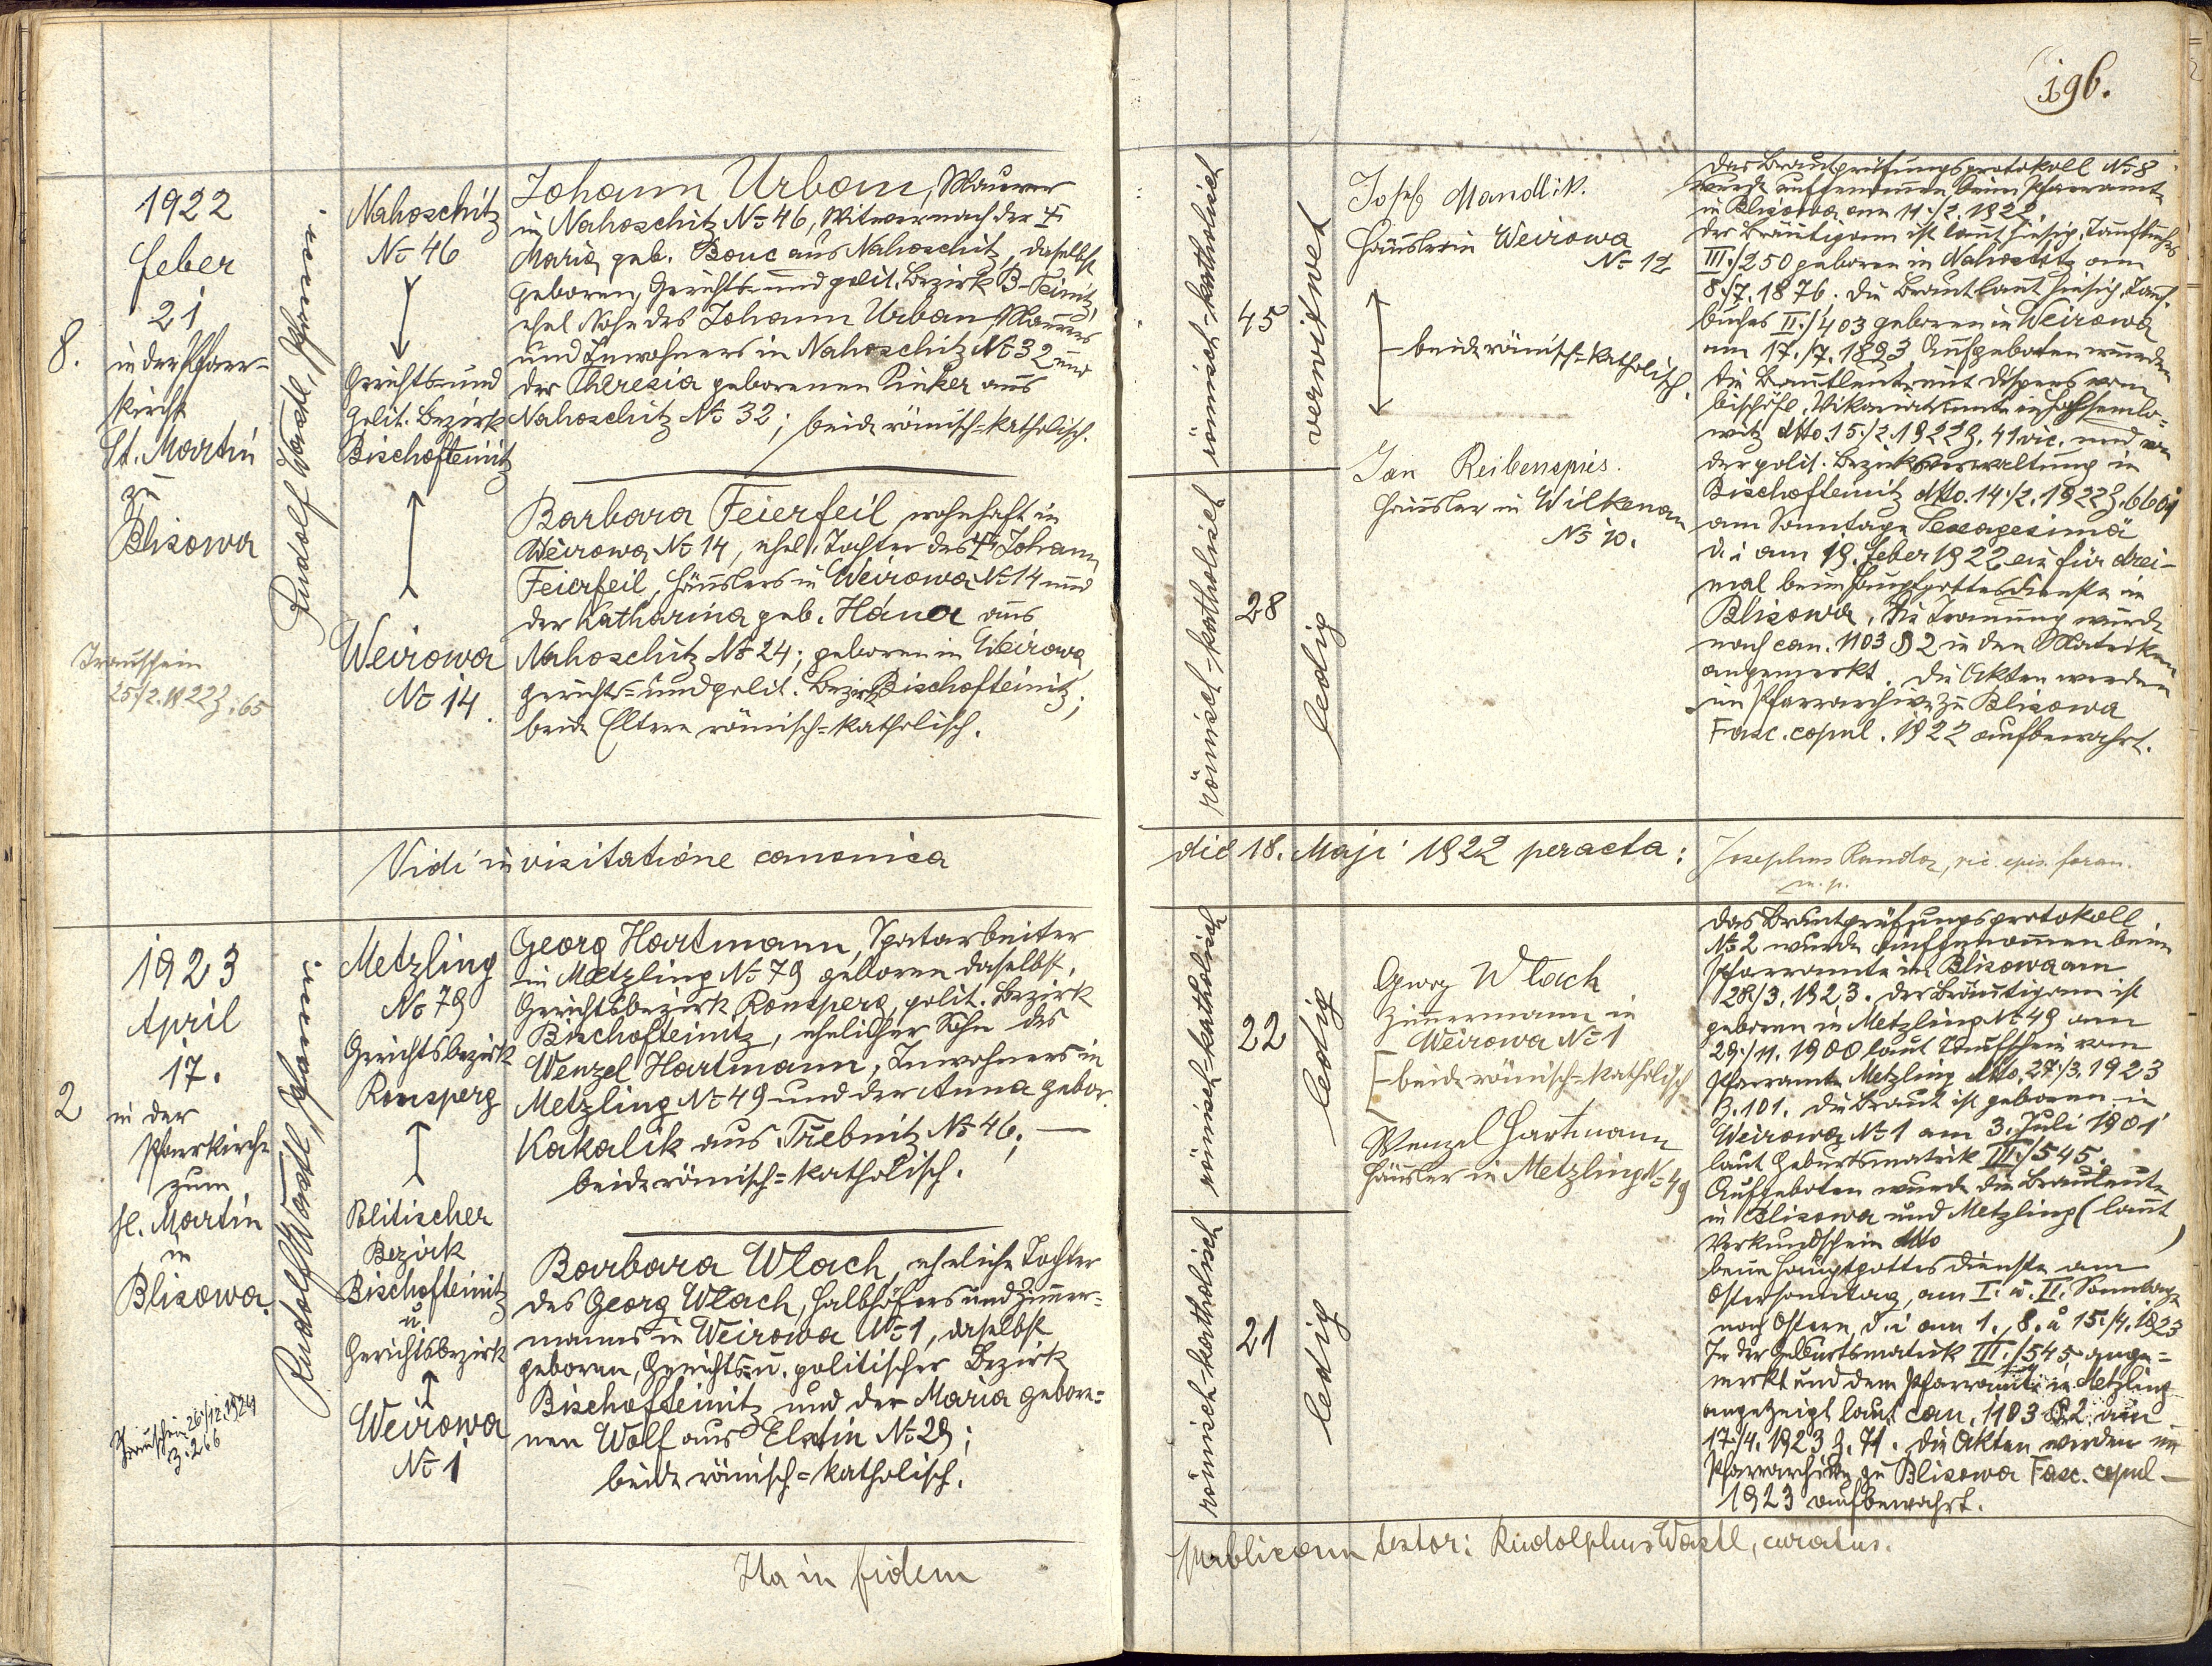 196.
8.
1922
feber
21
in der Pfarr-
kirche
St. Martin
zu
Blisowa
Trauschein
25/2. 1922 Z: 65
Rudolf Wastl, Pfarrer.
Nahoschitz
No 46
Gerichts= und
polit. Bezirk
Bischofteinitz
Weirowa
No 14.
Johann Urban, Maurer
in Nahoschitz No 46, Witwer nach der †
Maria geb. Bouc aus Nahoschitz, daselbst
geboren, Gerichts= und polit. Bezirk B-Teinitz,
ehel Sohn des Johann Urban, Maurers
und Inwohners in Nahoschitz No 32 und
der Theresia geborenen Pinker aus
Nahoschitz No 32; beide römisch=katholisch.
Barbara Feierfeil wohnhaft in
Weirowa No 14, ehel. Tochter des † Johann
Feierfeil, Häuslers in Weirowa No 14 und
der Katharina geb. Hána aus
Nahoschitz No 24; geboren in Weirowa,
gerichts= und polit. Bezirk Bischofteinitz;
beide Eltern römisch=katholisch.
römisch-katholisch
45
verwitwet
römisch-katholisch
28
ledig
Josef Mandlik.
Häusler in Weirowa
No 12
beide römisch=katholisch.
Jan Reibenspies.
Häusler in Wilkenau
No 10.
Das Brautprüfungsprotokoll No 8
wurde aufgenommen beim Pfarramte
in Blisowa am 11./2. 1922.
Der Bräutigam ist laut hiesig. Taufbuches
III./250 geboren in Nahoschitz am
8./7. 1876. Die Braut laut hiesig. Tauf-
buches II./403 geboren in Weirowa
am 17./7. 1893. Aufgeboten wurden
die Brautleute mit Dispens vom
bischöfl. Vikariatsamte in Hochsemlo-
witz dtto 15./2. 1922 Z. 41 vic. und von
der polit. Bezirksverwaltung in
Bischofteinitz dtto. 14./2. 1922 Z.
am Sonntage Sexagesimä
d. i am 19. feber 1922 ein für drei-
mal beim Hauptgottesdienste in
Blisowa. Die Trauung wurde
nach can. 1103 § 2 in den Matriken
angemerkt. Die Akten werden
im Pfarrarchive zu Blisowa
Fasc. copul. 1922 aufbewahrt.
Vidi in visitatione canonica die 18. Maji 1922 peracta: Josephus Randa, vic. epis. foran.
m. p.
2
1923
April
17.
in der
Pfarrkirche
zum
hl. Martin
in
Blisowa.
Trauschein 26./12. 1924
Z. 266
Rudolf Wastl, Pfarrer
Metzling
No 79
Gerichtsbezirk
Ronsperg
Politischer
Bezirk
Bischofteinitz
u.
Gerichtsbezirk
Weirowa
No 1
Georg Hartmann,
in Metzling No 79 geboren daselbst,
Gerichtsbezirk Ronsperg, polit. Bezirk
Bischofteinitz, ehelicher Sohn des
Wenzel Hartmann, Inwohners in
Metzling No 49 und der Anna gebor.
Kakalik aus Třebnitz No 46;
beide römisch=katholisch.
Barbara Wlach, eheliche Tochter
des Georg Wlach, Halbhöfers und Zimmer=
manns in Weirowa No 1, daselbst
geboren, Gerichts= u. politischer Bezirk
Bischofteinitz und der Maria gebore=
nen Wolf aus Elstin No 29;
beide römisch=katholisch.
römisch-katholisch
22
ledig
römisch-katholisch
21
ledig
Georg Wlach
Zimmermann in
Weirowa No 1
beide römisch=katholisch
Wenzel Hartmann
Häusler in Metzling No 49
Das Brautprüfungsprotokoll
No 2 wurde aufgenommen beim
Pfarramte in Blisowa am
28/3. 1923. Der Bräutigam ist
geboren in Metzling No 49 am
29./11. 1900 laut Taufschein vom
Pfarramte Metzling dtto. 27./3. 1923
Z. 101. Die Braut ist geboren in
Weirowa No 1 am 3. Juli 1901
laut Geburtsmatrik III./545.
Aufgeboten wurde die Brautleute
in Blisowa und Metzling (laut
Verkündschein dtto )
beim Hauptgottesdienste am
Ostersonntag, am I. u. II. Sonntage
nach Ostern, d. i am 1., 8. u 15./4. 1923
In der Geburtsmatrik III./545 ange=
merkt und dem Pfarramte in Metzling
angezeigt laut can. 1103 § 2. am
17./4. 1923 Z. 71. Die Akten werden im
Pfarrarchive zu Blisowa Fasc. copul.
1923 aufbewahrt.
Ita in fidem publicam testor: Rudolphus Wastl, curatus.